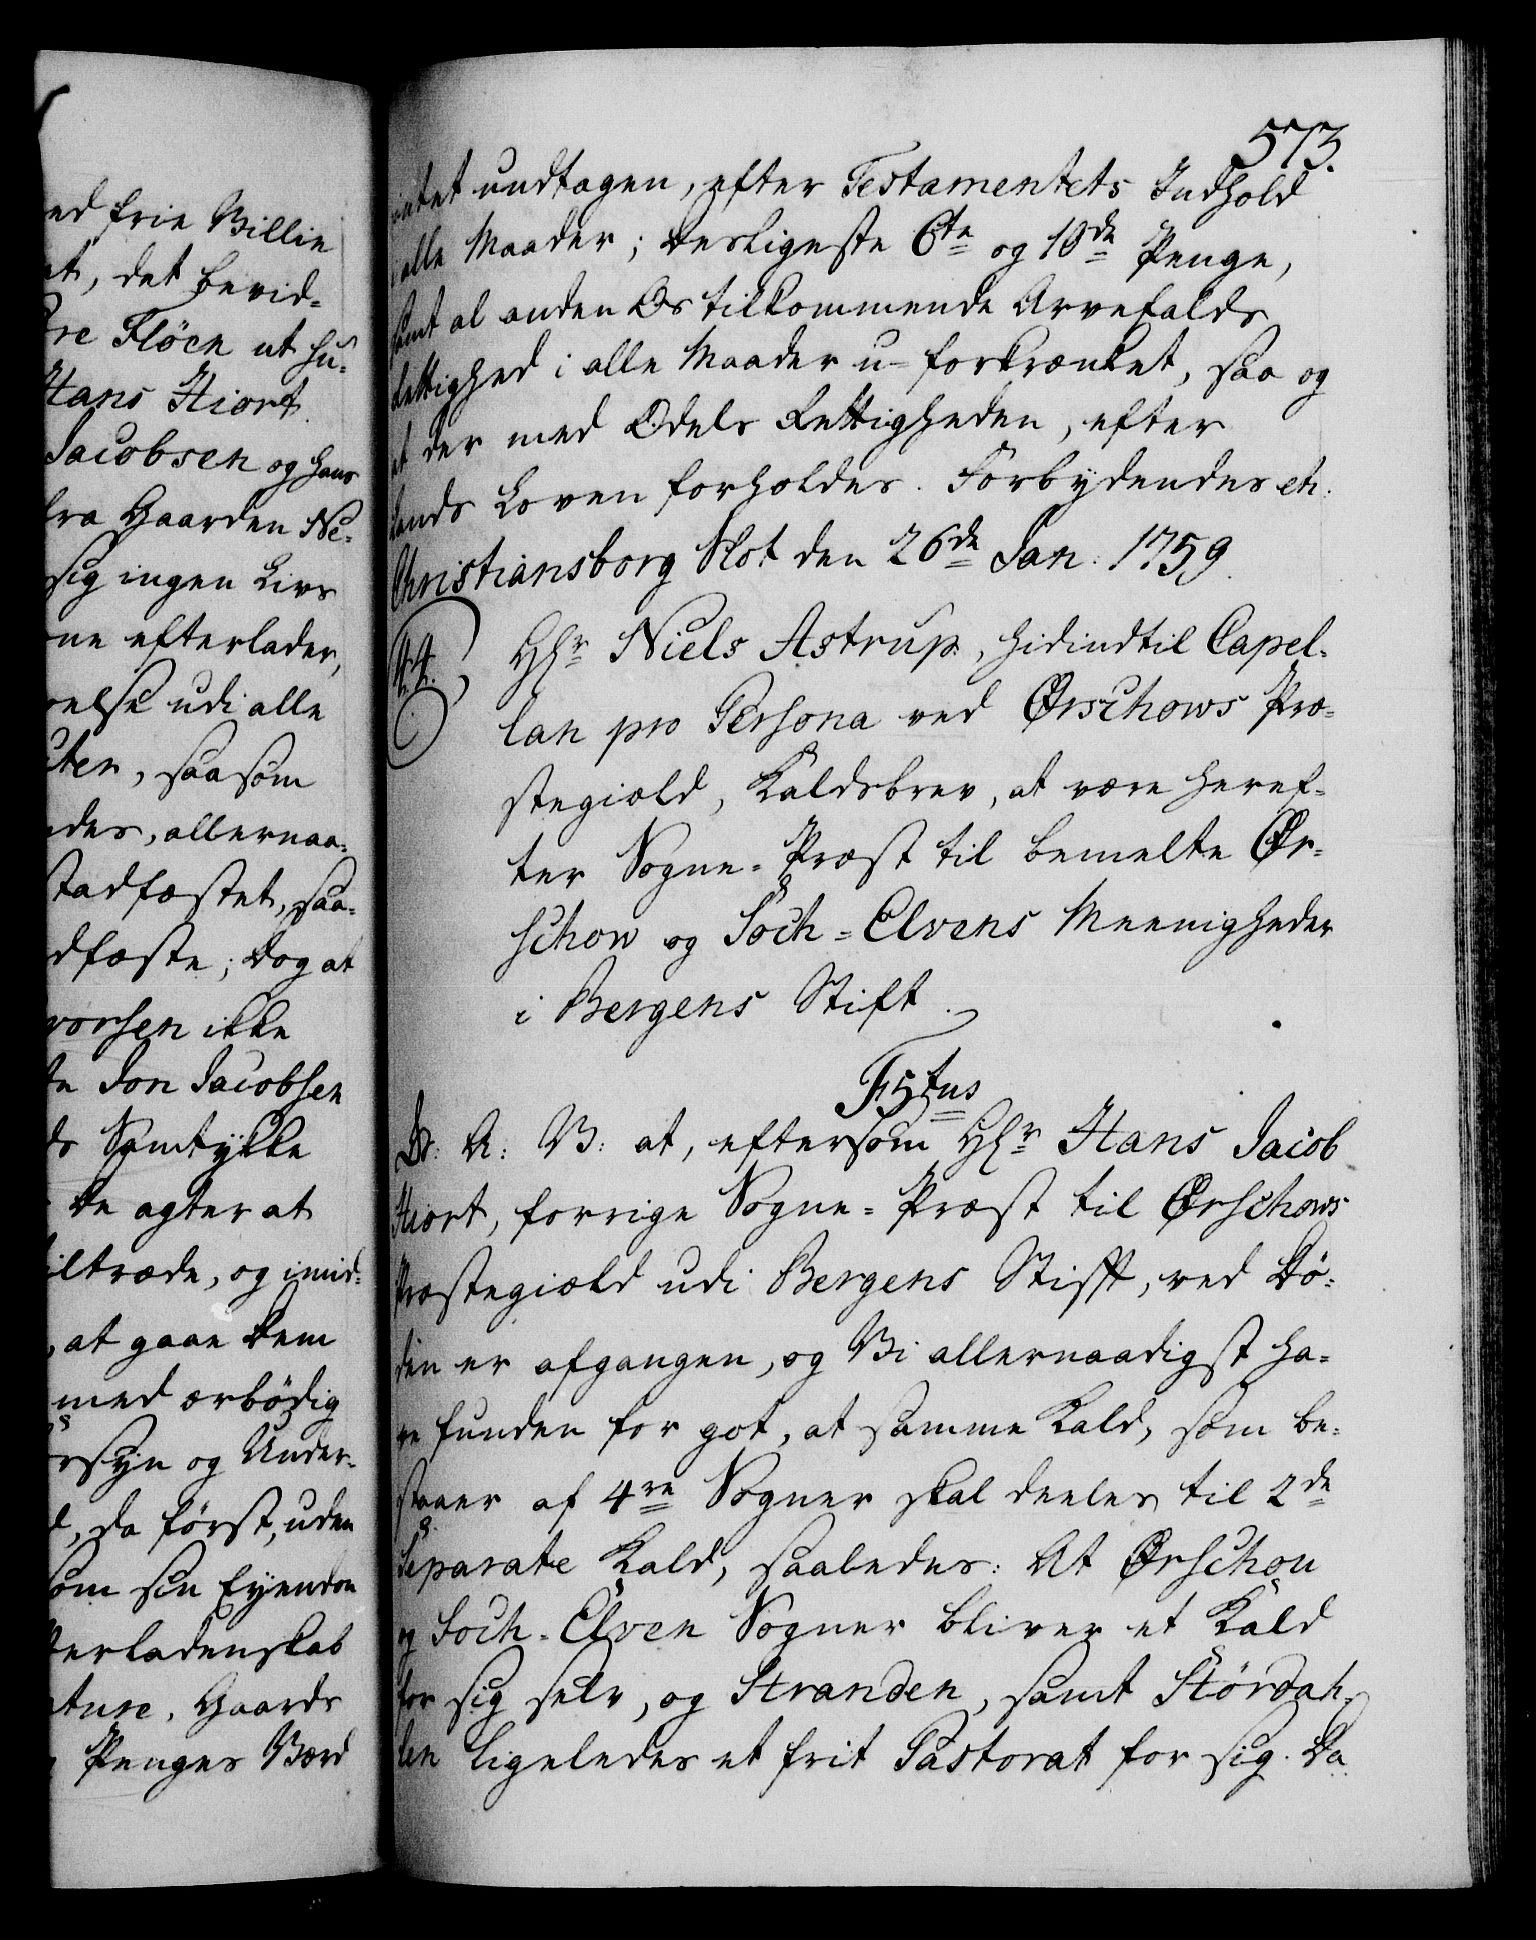 ed frie Villie
at, det bevid-
re Flöen et Hu-
Hans Hiort
Jacobsen og hans
fra Gaarden Ne-
sig ingen Livs
ne efterlader,
else udi alle
ter, saasom
des, allernaa-
stadfæstet, saa-
dfæste; dog at
vorsen ikke
te Jon Jacobsen
ds Samtykke
de agter at
iltræde, og imid-
, at gaae dem
med ærbödig
rsyn og Under-
d, da först, uden
som sin Eyendom
terladenskab
ture, Gaards
Penges Værd
573.
intet undtagen, efter Testamentets Indhold
i alle Maader; desligeste 6te og 10de Penge,
samt al anden Os tilkommende Arvefalds
Rettighed i alle Maader u-forkrænket, saa og
at der med Odels Rettigheden, efter
Lands Loven forholdes. Forbydendes etc:
Christiansborg Slot den 26de Jan: 1759.
44.) Hr Niels Astrup, hidindtil Capel-
lan pro Persona ved Ørschows Præ-
stegiæld, Kaldsbrev, at være heref-
ter Sogne-Præst til bemelte Ør-
schow og Söch-Elvens Meenigheder
i Bergens Stift.
F5tus
Gr: A: V: at, eftersom Hr Hans Jacob
Hiort, forrige Sogne-Præst til Ørschows
Præstegiæld udi Bergens Stift, ved Dö-
den er afgangen, og Vi allernaadigst ha-
ve funden for got, at samme Kald, som be-
staaer af 4re Sogner skal deeles til 2de
Separate Kald, saaledes: At Ørschou
og Soch-Elven Sogner bliver et Kald
for sig selv, og Stranden, samt Stördah-
len ligeledes et frit Pastorat for sig. Da